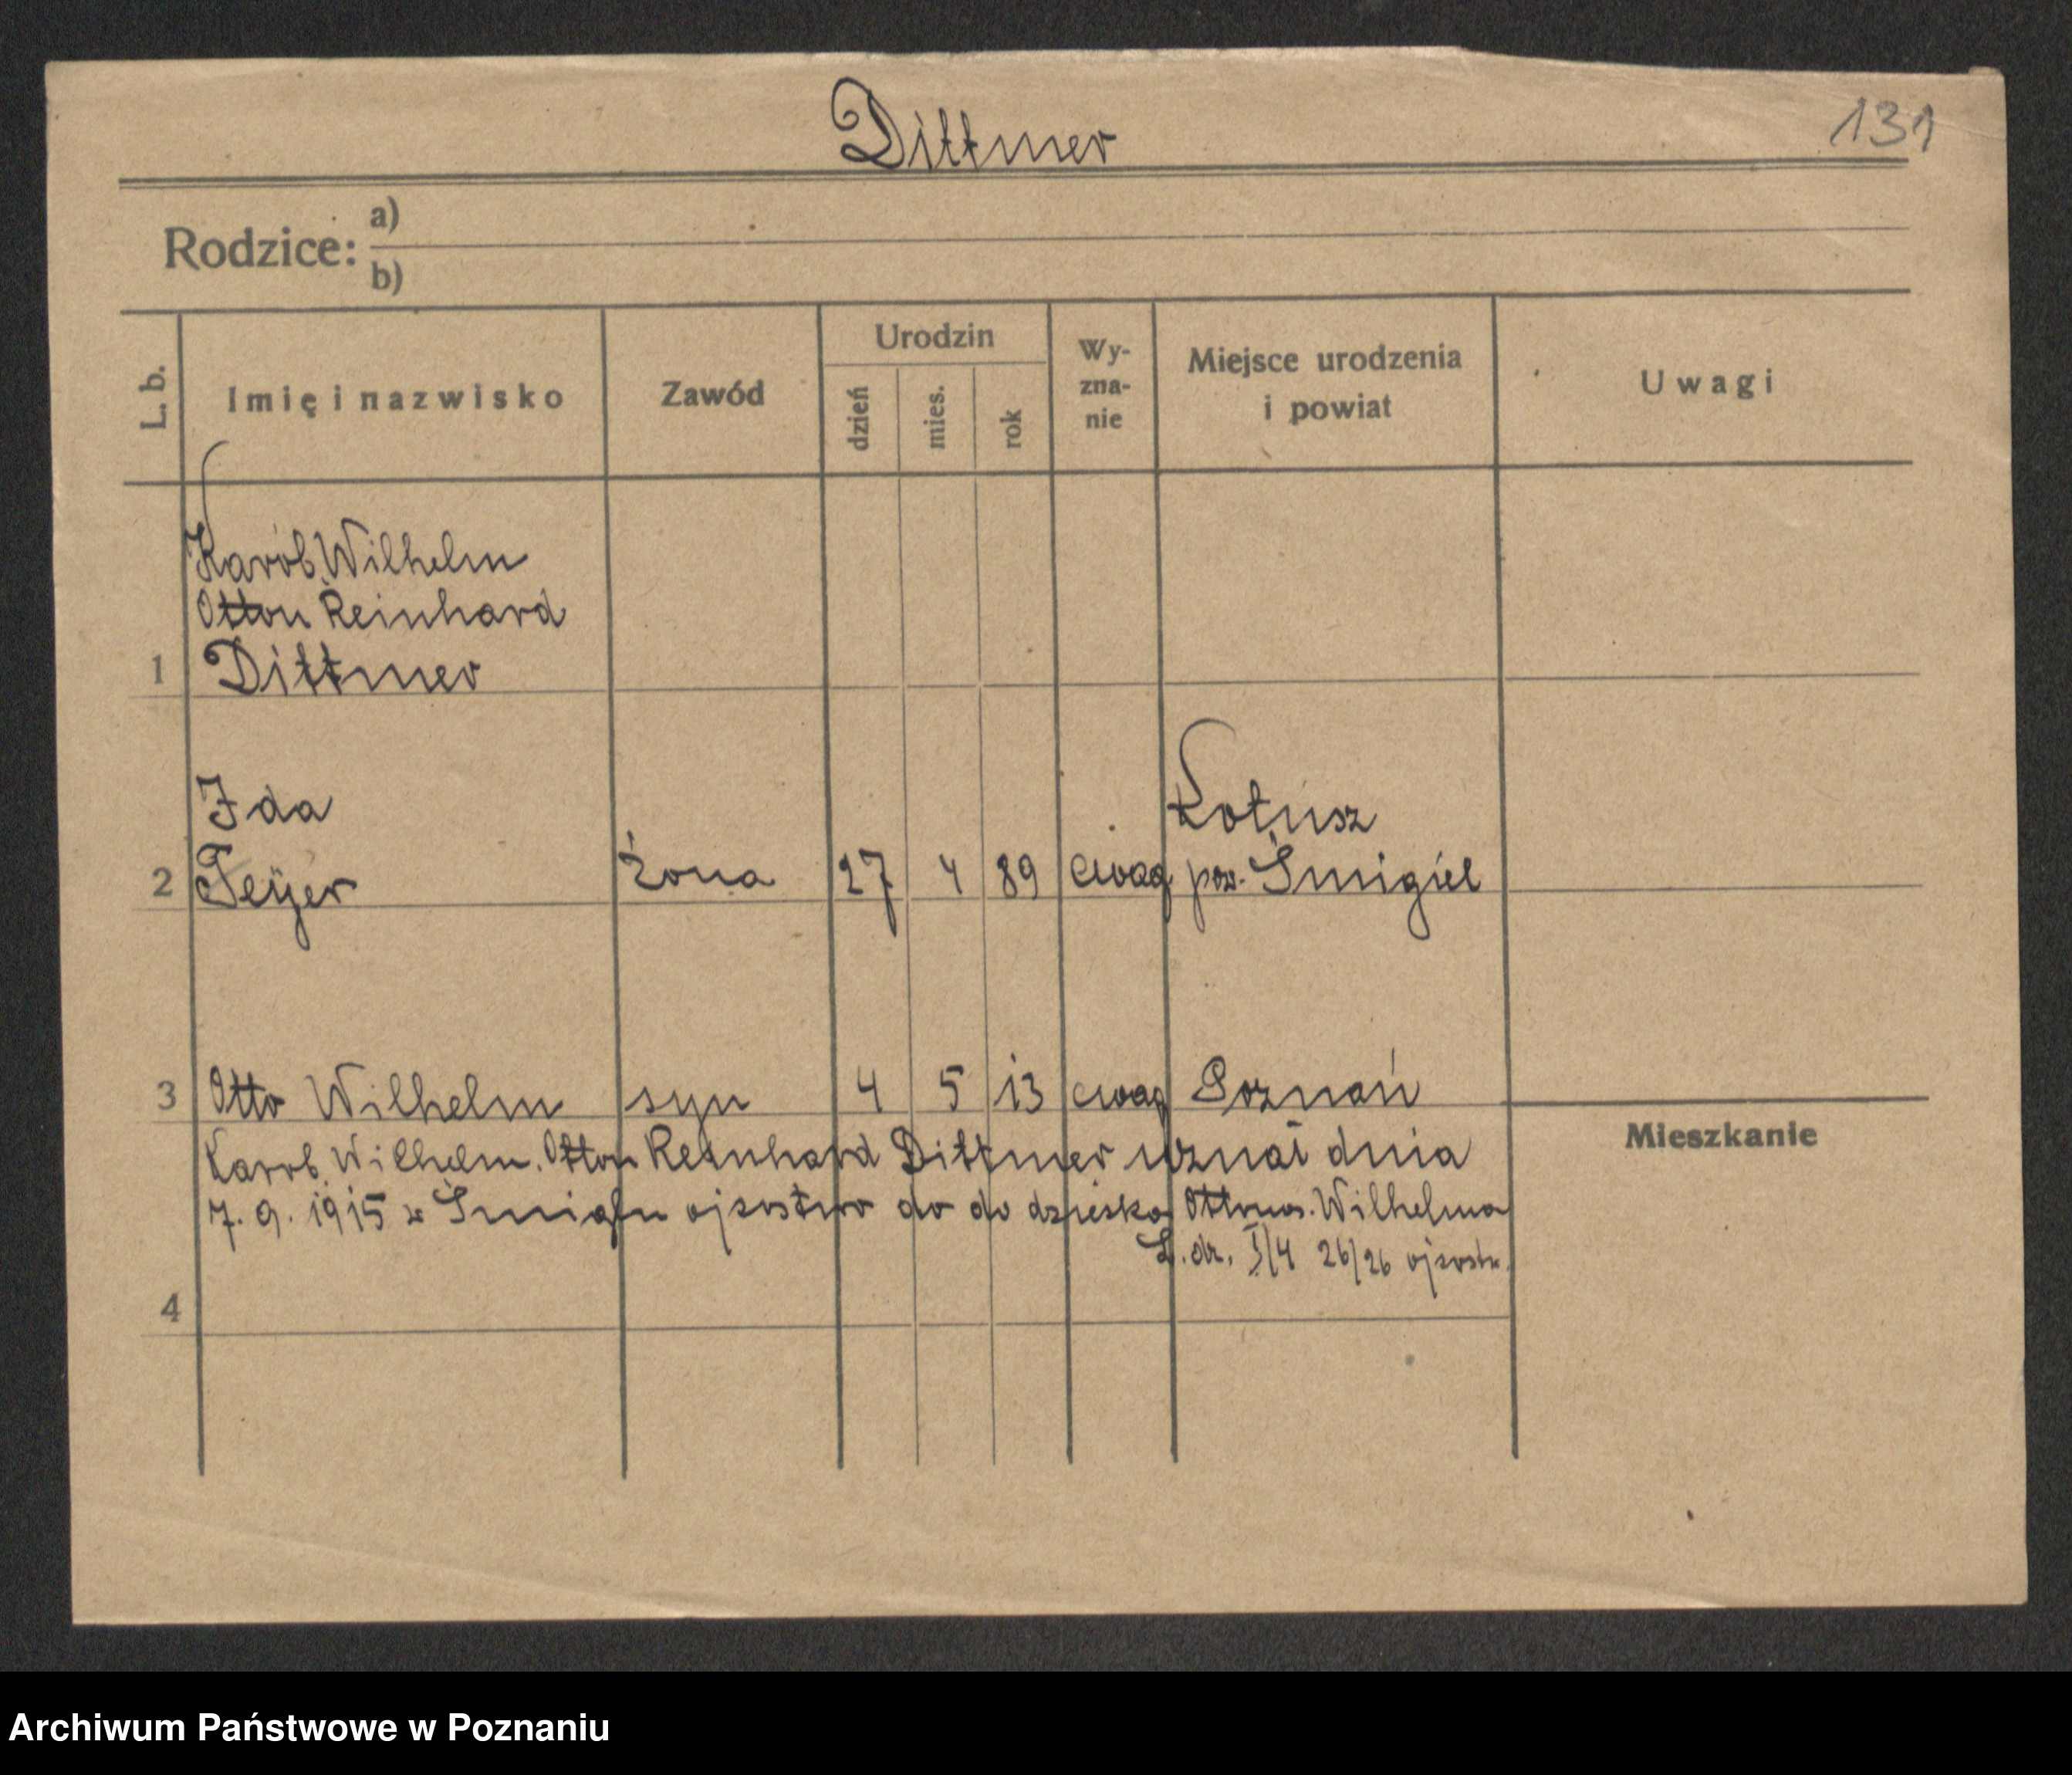 Dittmer
131
Rodzice: a)
b)
L. b.
Imię i nazwisko
Zawód
Urodzin
dzień
mies.
rok
Wy-
zna-
nie
Miejsce urodzenia
i powiat
Uwagi
Karol Wilhelm
Otton Reinhard
1 Dittmer
Ida Kotusz
2 Feyer żona 27 4 89 ewag pow. Śmigiel
3 Otto Wilhelm syn 4 5 13 ewag Poznań
Mieszkanie
Karol Wilhelm Otton Reinhard Dittmer uznał dnia
7. 9. 1915 w Śmiglu ojcostwo do do dziecka Ottona Wilhelma
L. dz. I/4 26/26 ojcostw.
4
Archiwum Państwowe w Poznaniu